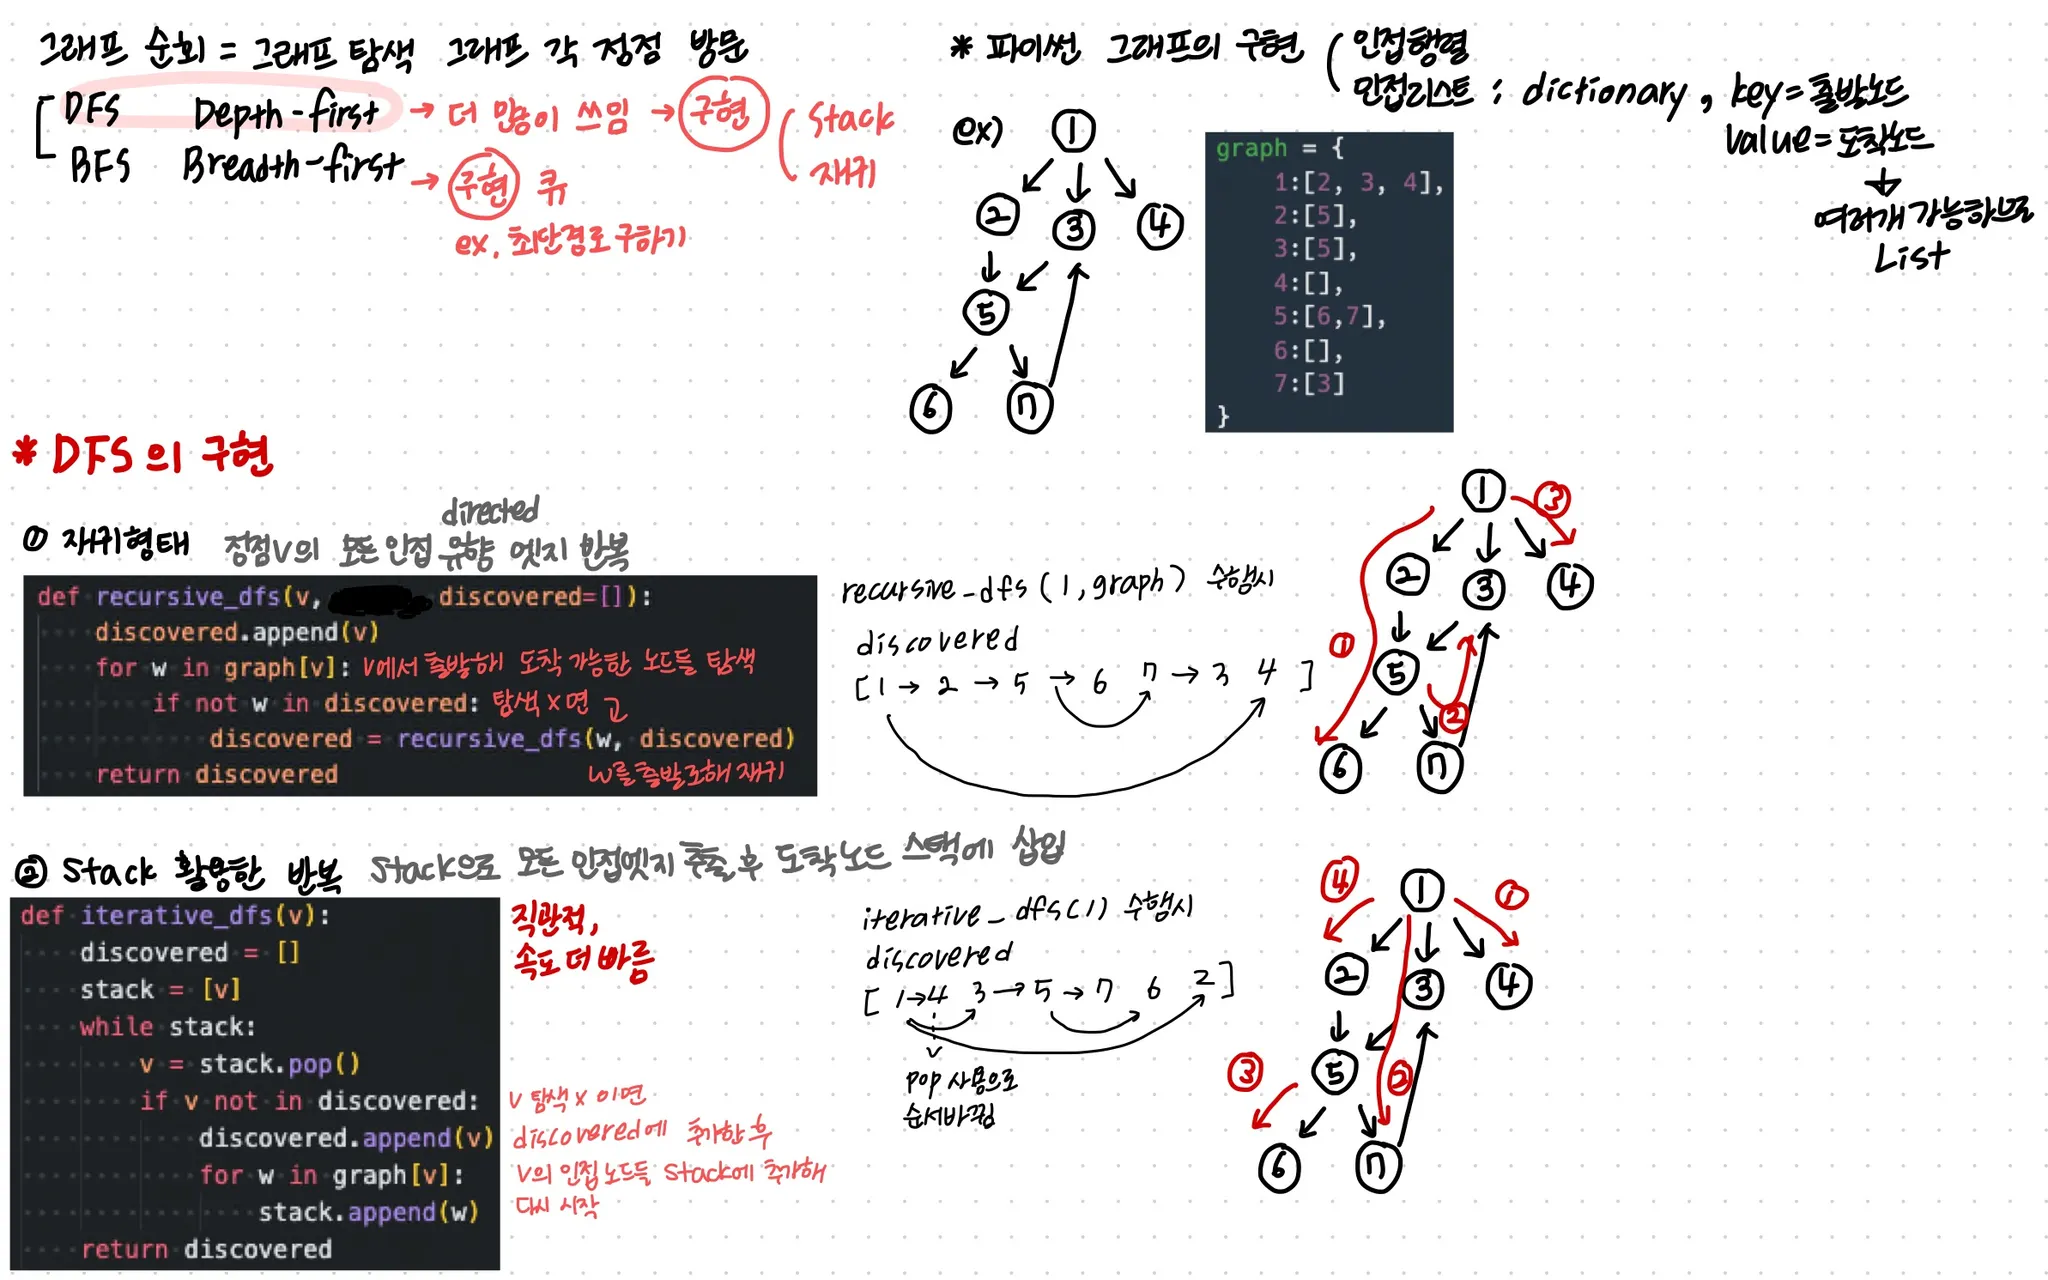 그래프 순회 = 그래프 탐색 그래프 각 정점 방문
DFS Depth-first → 더 많이 쓰임 → 구현 Stack
재귀
BFS Breadth-first → 구현 큐
ex. 최단경로 구하기
* 파이썬 그래프의 구현 인접행렬
인접리스트 : dictionary, key=출발노드
value=도착노드
↓
여러개 가능하므로
List
ex)
1
2 3 4
5
6 7
graph = {
1:[2, 3, 4],
2:[5],
3:[5],
4:[],
5:[6,7],
6:[],
7:[3]
}
* DFS의 구현
① 재귀형태 정점v의 모든 인접 유향 엣지 반복
directed
def recursive_dfs(v, discovered=[]):
discovered.append(v)
for w in graph[v]: v에서 출발해 도착 가능한 노드들 탐색
if not w in discovered: 탐색×면 고
discovered = recursive_dfs(w, discovered)
return discovered w를 출발로해 재귀
recursive_dfs(1,graph) 수행시
discovered
[1 → 2 → 5 → 6 7 → 3 4 ]
1 ③
2 3 4
①
5
②
6 7
② Stack 활용한 반복 Stack으로 모든 인접엣지 추출 후 도착노드 스택에 삽입
def iterative_dfs(v):
discovered = []
stack = [v]
while stack:
v = stack.pop()
if v not in discovered:
discovered.append(v)
for w in graph[v]:
stack.append(w)
return discovered
직관적,
속도 더 빠름
v 탐색× 이면
discovered에 추가한 후
v의 인접 노드들 Stack에 추가해
다시 시작
iterative_dfs(1) 수행시
discovered
[ 1→4 3→5→7 6 2]
pop 사용으로
순서바뀜
④ 1 ①
2 3 4
③ 5 ②
6 7